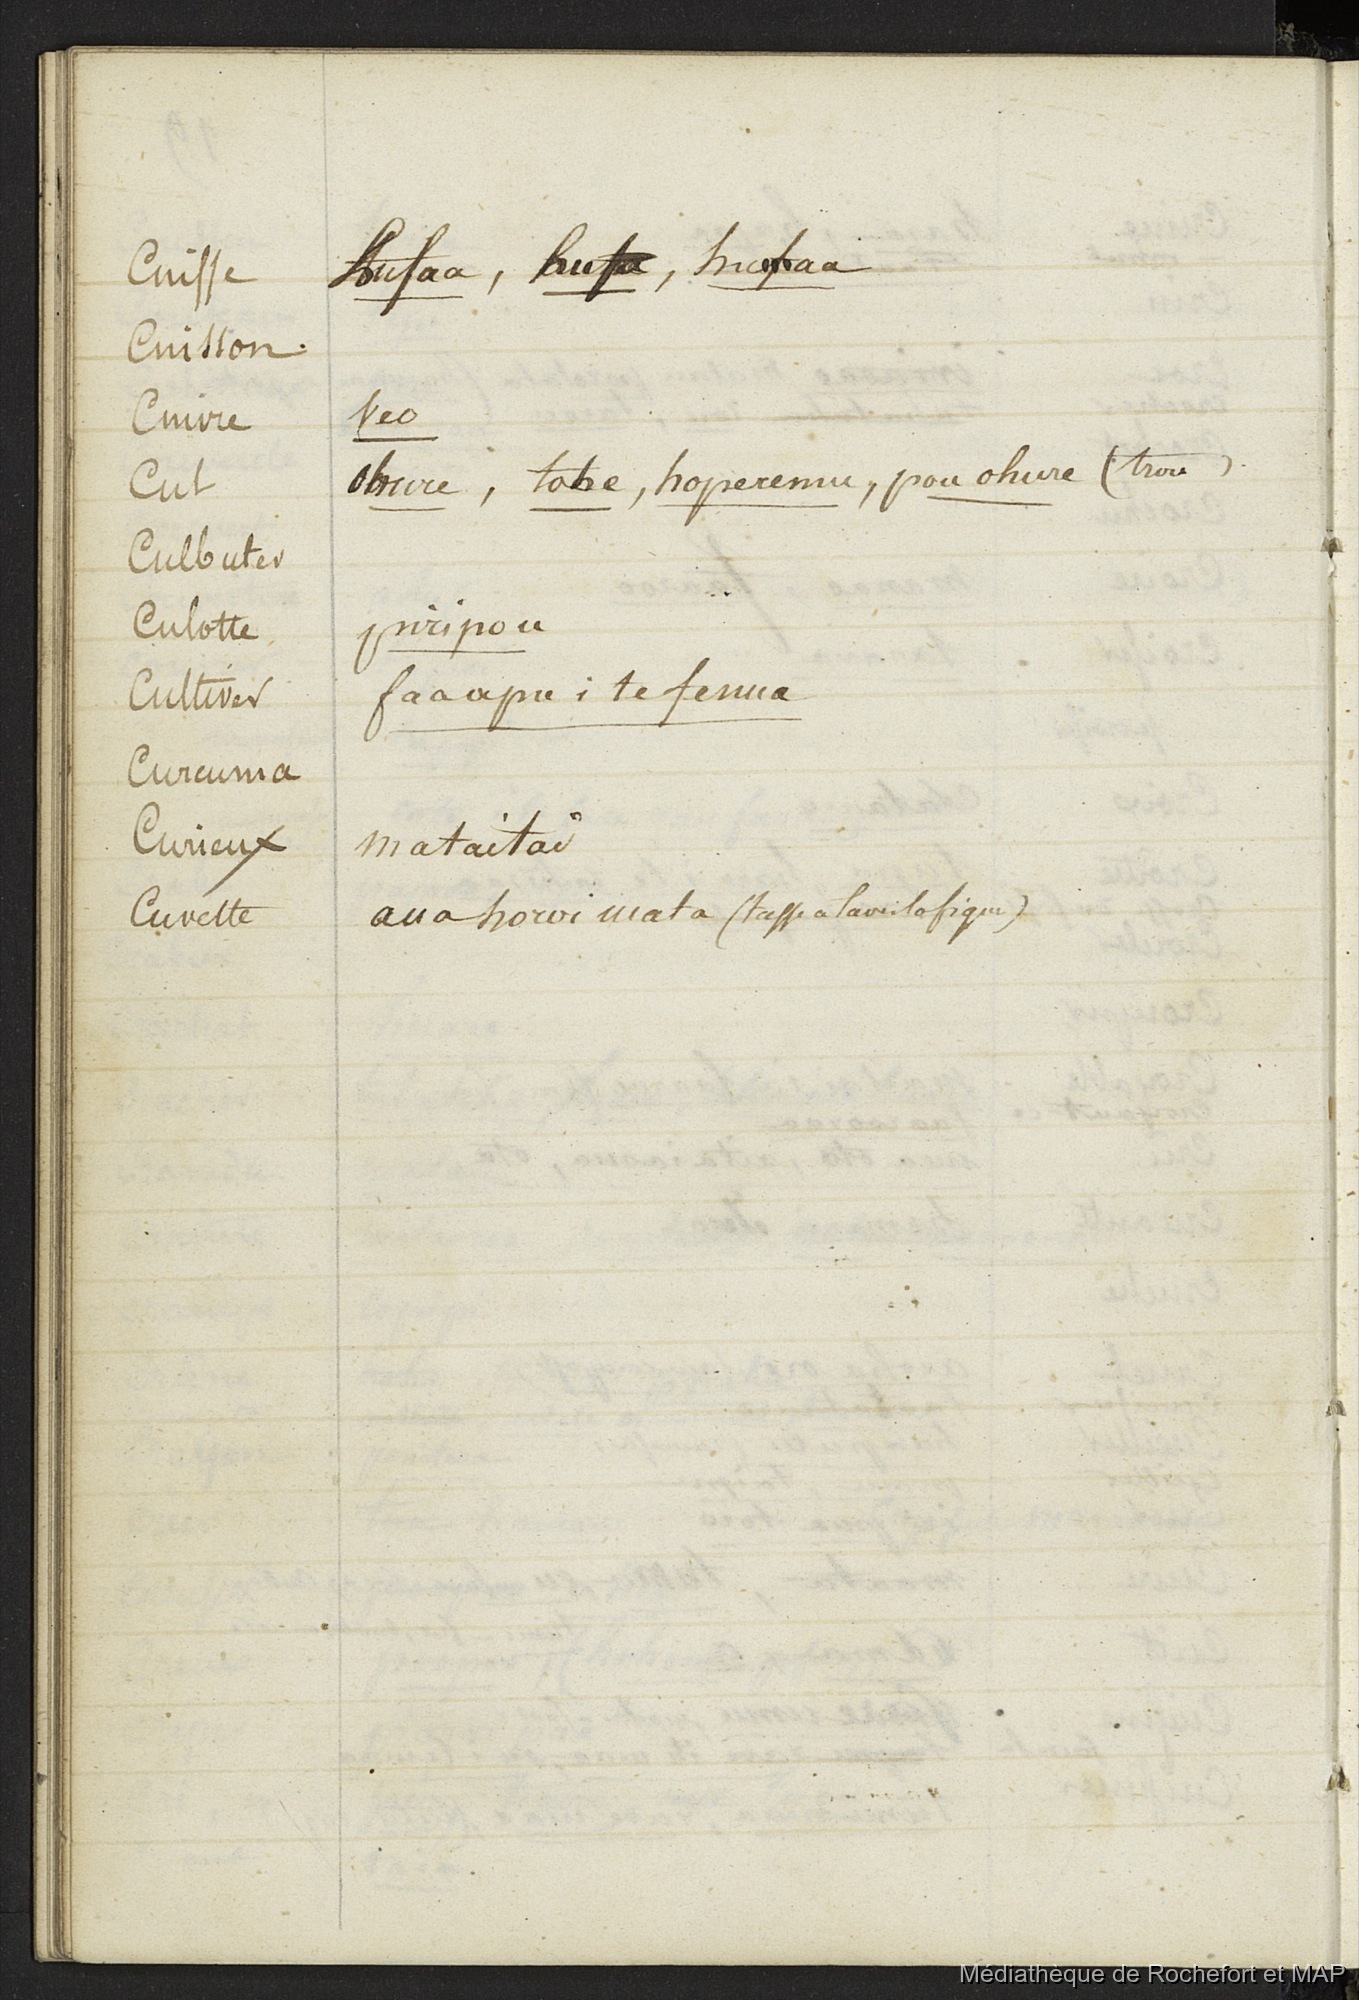 Cuisse hufaa, hufa, hufaa
Cuisson.
Cuivre veo
Cul ohure, tohe, hoperemu, pou ohure (trou)
Culbuter
Culotte piripou
Cultiver faaapu i te fenua
Curcuma
Curieux mataitai
Cuvette aua horoi mata (tasse a laver la figure)
Médiathèque de Rochefort et MAP